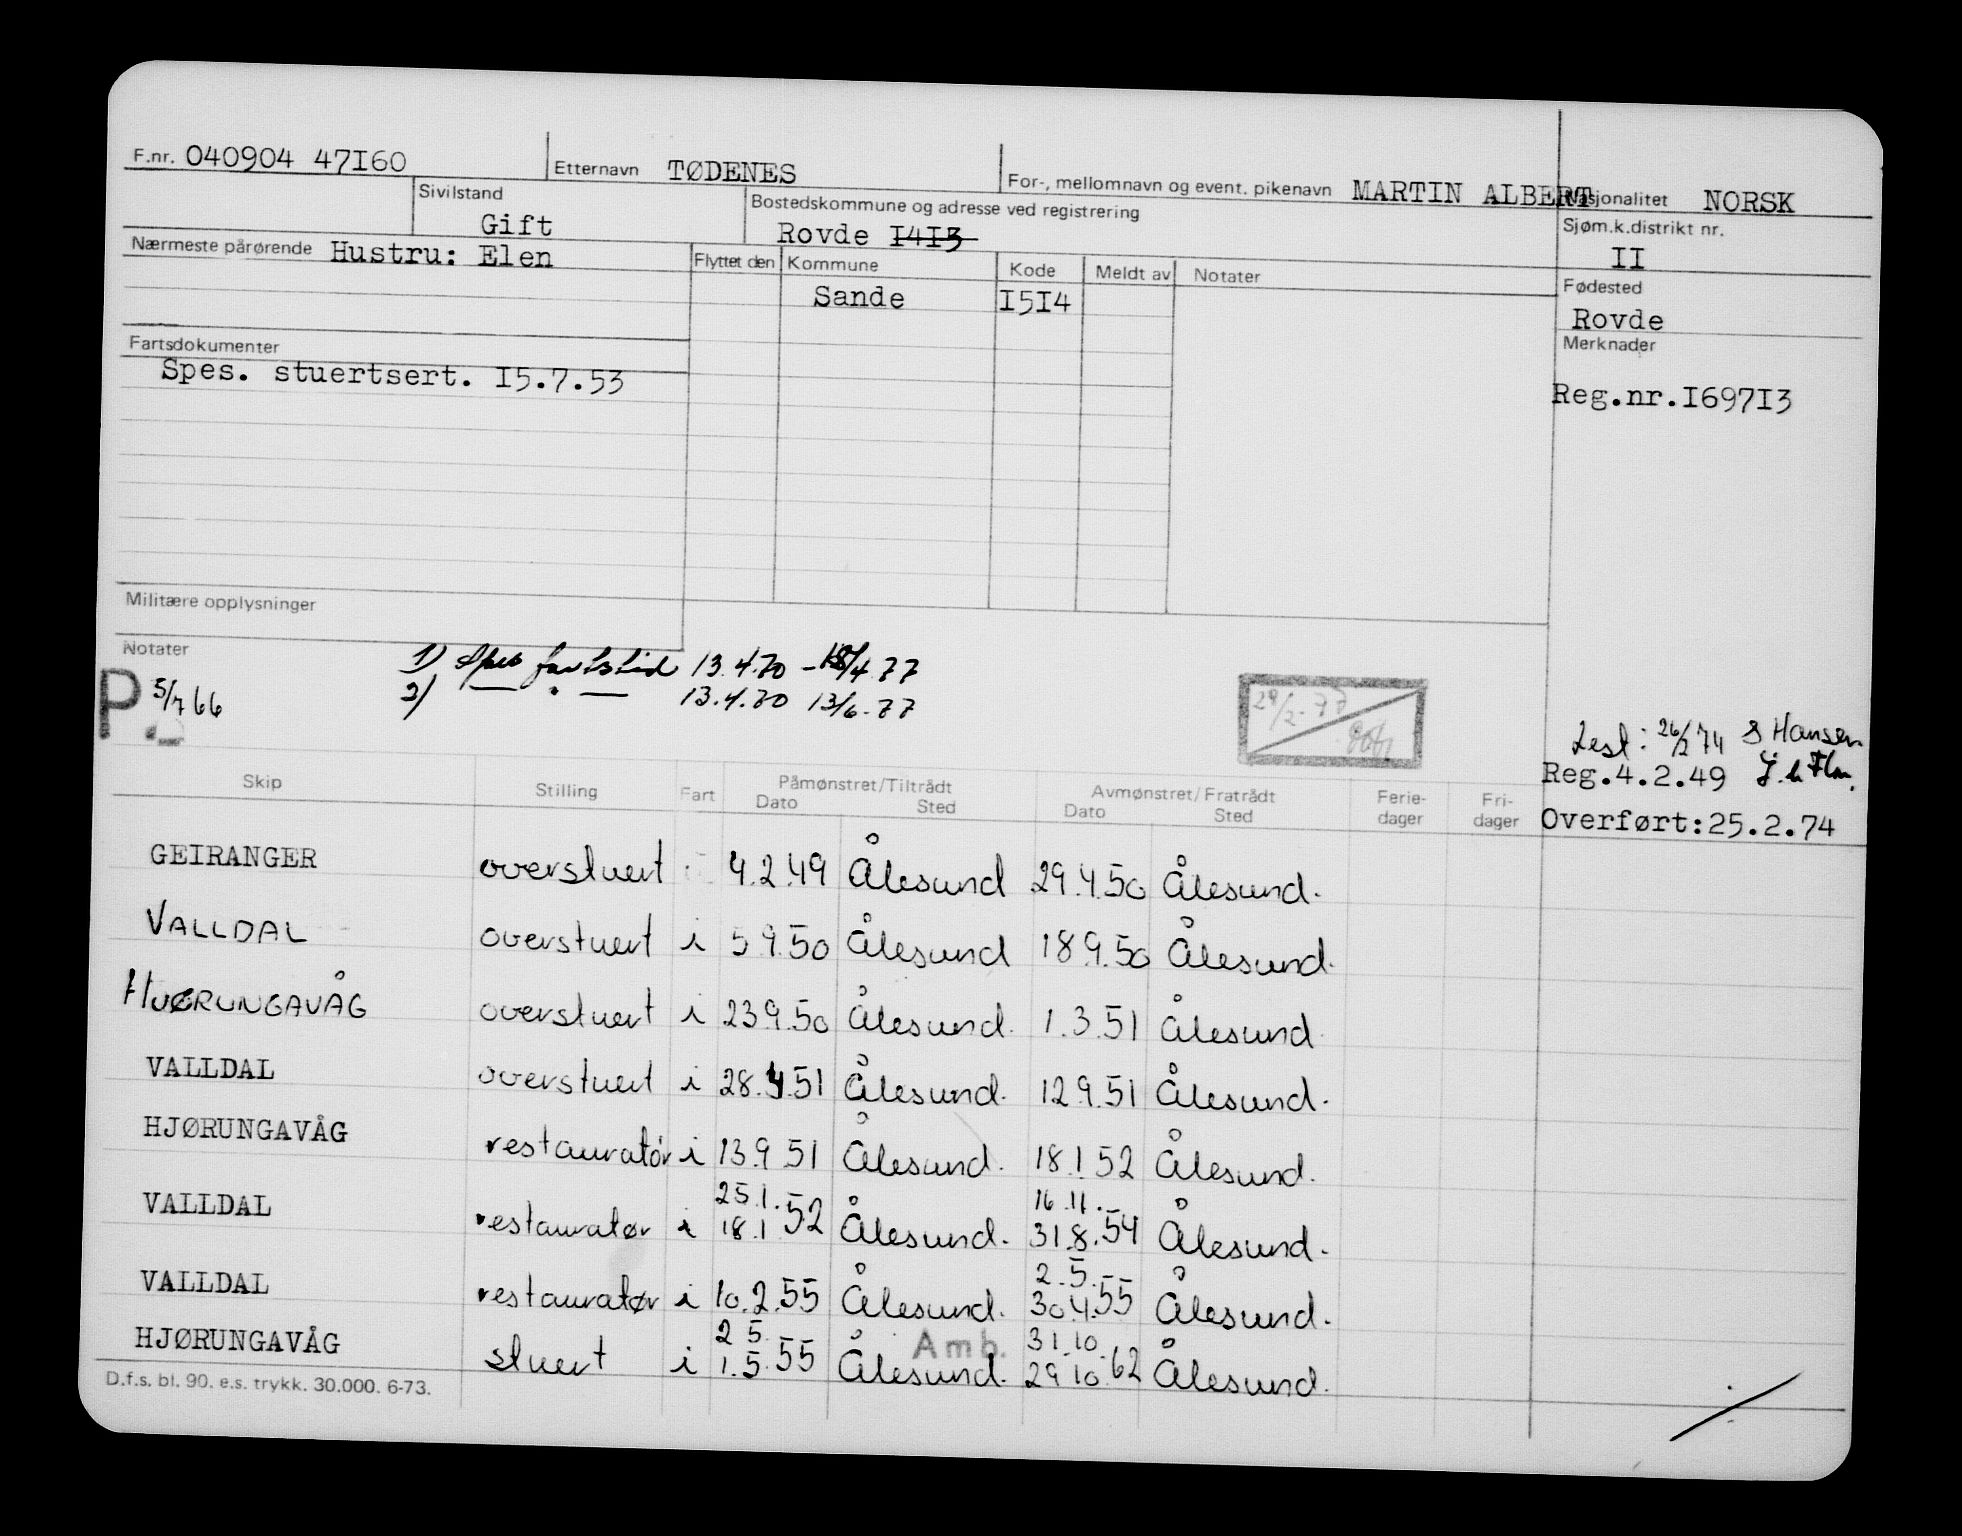 F.nr. 040904 47I60 Etternavn TØDENES For-, mellomnavn og event. pikenavn MARTIN ALBERT Nasjonalitet NORSK
Sivilstand Gift Bostedskommune og adresse ved registrering Rovde I4I3 Sjøm.k.distrikt nr. II
Nærmeste pårørende Hustru: Elen Flyttet den Kommune Kode Meldt av Notater Fødested
Sande I5I4 Rovde
Fartsdokumenter Merknader
Spes. stuertsert. I5.7.53 Reg.nr.I697I3
Militære opplysninger
Notater
1) Spes fartstid 13.4.70 - 18/4 77
P 5/7 66 2) — " — 13.4.70 13/6-77
29/2-77
Test: 26/2 74 S Hansen
Reg.4.2.49
Overført:25.2.74
Skip Stilling Fart Påmønstret/Tiltrådt Dato Sted Avmønstret/Fratrådt Dato Sted Ferie-dager Fri-dager
GEIRANGER overstuert 4.2.49 Ålesund 29.4.50 Ålesund.
VALLDAL overstuert i 5 9.50 Ålesund 18.9.50 Ålesund.
HJØRUNGAVÅG overstuert i 23 9.50 Ålesund. 1.3.51 Ålesund
VALLDAL overstuert i 28.4.51 Ålesund. 12.9.51 Ålesund.
HJØRUNGAVÅG restauratør i 13.9 51 Ålesund. 18.1.52 Ålesund.
25.1. 16.11.
VALLDAL restauratør i 18.1 52 Ålesund. 31.8.54 Ålesund.
2.5.
VALLDAL restauratør i 10.2.55 Ålesund. 30.4.55 Ålesund.
2 5. Amb. 31.10
HJØRUNGAVÅG stuert i 1.5.55 Ålesund. 29.10.62 Ålesund.
D.f.s. bl. 90. e.s. trykk. 30.000. 6-73.